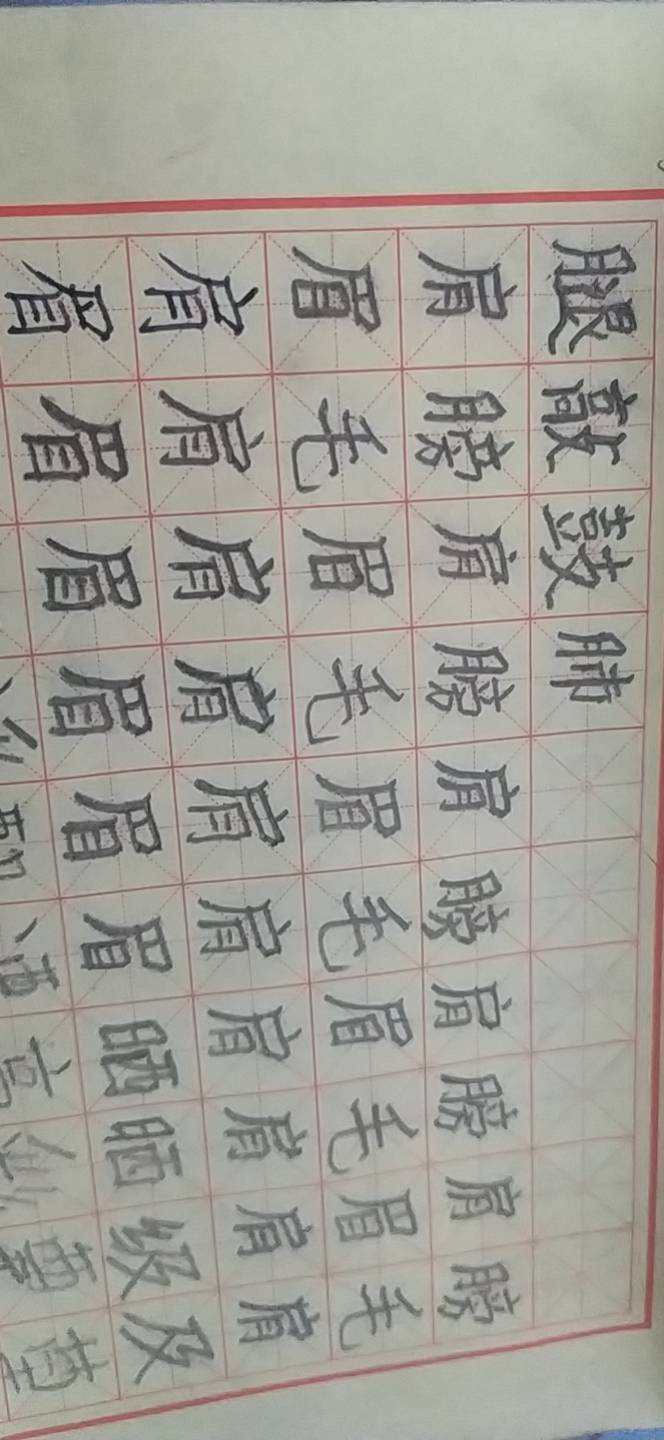 腿敲鼓肺
肩膀肩膀肩膀肩膀肩膀
眉毛眉毛眉毛眉毛眉毛
肩肩肩肩肩肩肩肩肩肩
眉眉眉眉眉眉晒晒级及